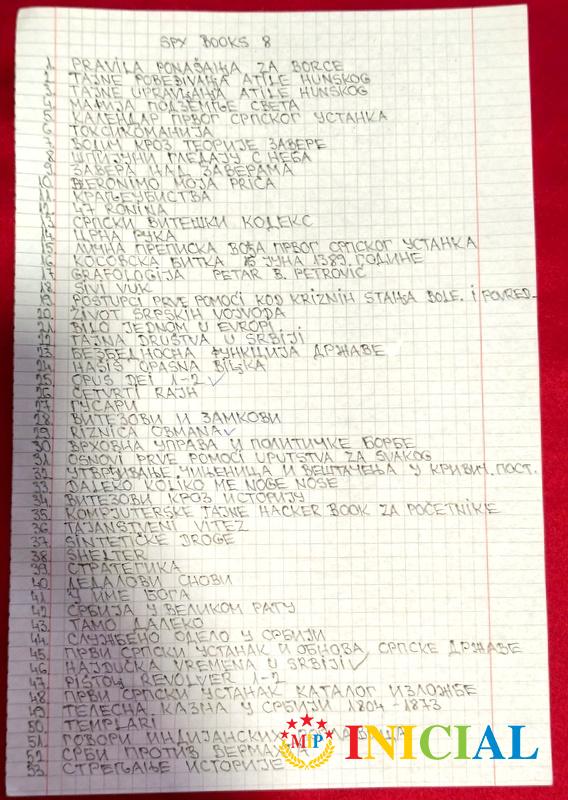 SPY BOOKS 8
1. PRAVILA PONAŠANJA ZA BORCE
2. TAJNE POBEĐIVANJA ATILE HUNSKOG
3. TAJNE UPRAVLJANJA ATILE HUNSKOG
4. МАФИЈА ПОДЗЕМЉЕ СВЕТА
5. КАЛЕНДАР ПРВОГ СРПСКОГ УСТАНКА
6. ТОКСИКОМАНИЈА
7. ВОДИЧ КРОЗ ТЕОРИЈЕ ЗАВЕРЕ
8. ШПИЈУНИ ГЛЕДАЈУ С НЕБА
9. ЗАВЕРА НАД ЗАВЕРАМА
10. DJERONIMO MOJA PRIČA
11. КРАЉЕУБИСТВА
12. 47 RONINA
13. СРПСКИ ВИТЕШКИ КОДЕКС
14. ЦРНА РУКА
15. ЛИЧНА ПРЕПИСКА ВОЂА ПРВОГ СРПСКОГ УСТАНКА
16. КОСОВСКА БИТКА 15 ЈУНА 1389. ГОДИНЕ
17. GRAFOLOGIJA PETAR B. PETROVIĆ
18. SIVI VUK
19. POSTUPCI PRVE POMOĆI KOD KRIZNIH STANJA BOLE. I POVRED.
20. ŽIVOT SRPSKIH VOJVODA
21. BILO JEDNOM U EVROPI
22. TAJNA DRUŠTVA U SRBIJI
23. БЕЗБЕДНОСНА ФУНКЦИЈА ДРЖАВЕ
24. HAŠIŠ OPASNA BILJKA
25. OPUS DEI 1-2 ✓
26. ČETVRTI RAJH
27. ГУСАРИ
28. ВИТЕЗОВИ И ЗАМКОВИ
29. RIZNICA OBMANA ✓
30. ВРХОВНА УПРАВА И ПОЛИТИЧКЕ БОРБЕ
31. OSNOVI PRVE POMOĆI UPUTSTVA ZA SVAKOG
32. УТВРЂИВАЊЕ ЧИЊЕНИЦА И ВЕШТАЧЕЊА У КРИВИЧ. ПОСТ.
33. DALEKO KOLIKO ME NOGE NOSE
34. ВИТЕЗОВИ КРОЗ ИСТОРИЈУ
35. KOMPJUTERSKE TAJNE HACKER BOOK ZA POČETNIKE
36. TAJANSTVENI VITEZ
37. SINTETIČKE DROGE
38. SHELTER
39. СТРАТЕГИКА
40. ДЕДАЛОВИ СНОВИ
41. У ИМЕ БОГА
42. СРБИЈА У ВЕЛИКОМ РАТУ
43. ТАМО ДАЛЕКО
44. СЛУЖБЕНО ОДЕЛО У СРБИЈИ
45. ПРВИ СРПСКИ УСТАНАК И ОБНОВА СРПСКЕ ДРЖАВЕ
46. HAJDUČKA VREMENA U SRBIJI ✓
47. PIŠTOLJ REVOLVER 1-2
48. ПРВИ СРПСКИ УСТАНАК КАТАЛОГ ИЗЛОЖБЕ
49. ТЕЛЕСНА КАЗНА У СРБИЈИ 1804-1873
50. TEMPLARI
51. ГОВОРИ ИНДИЈАНСКИХ
52. СРБИ ПРОТИВ ВЕРМАХТА
53. СТРЕЉАЊЕ ИСТОРИЈЕ
MIP INICIAL